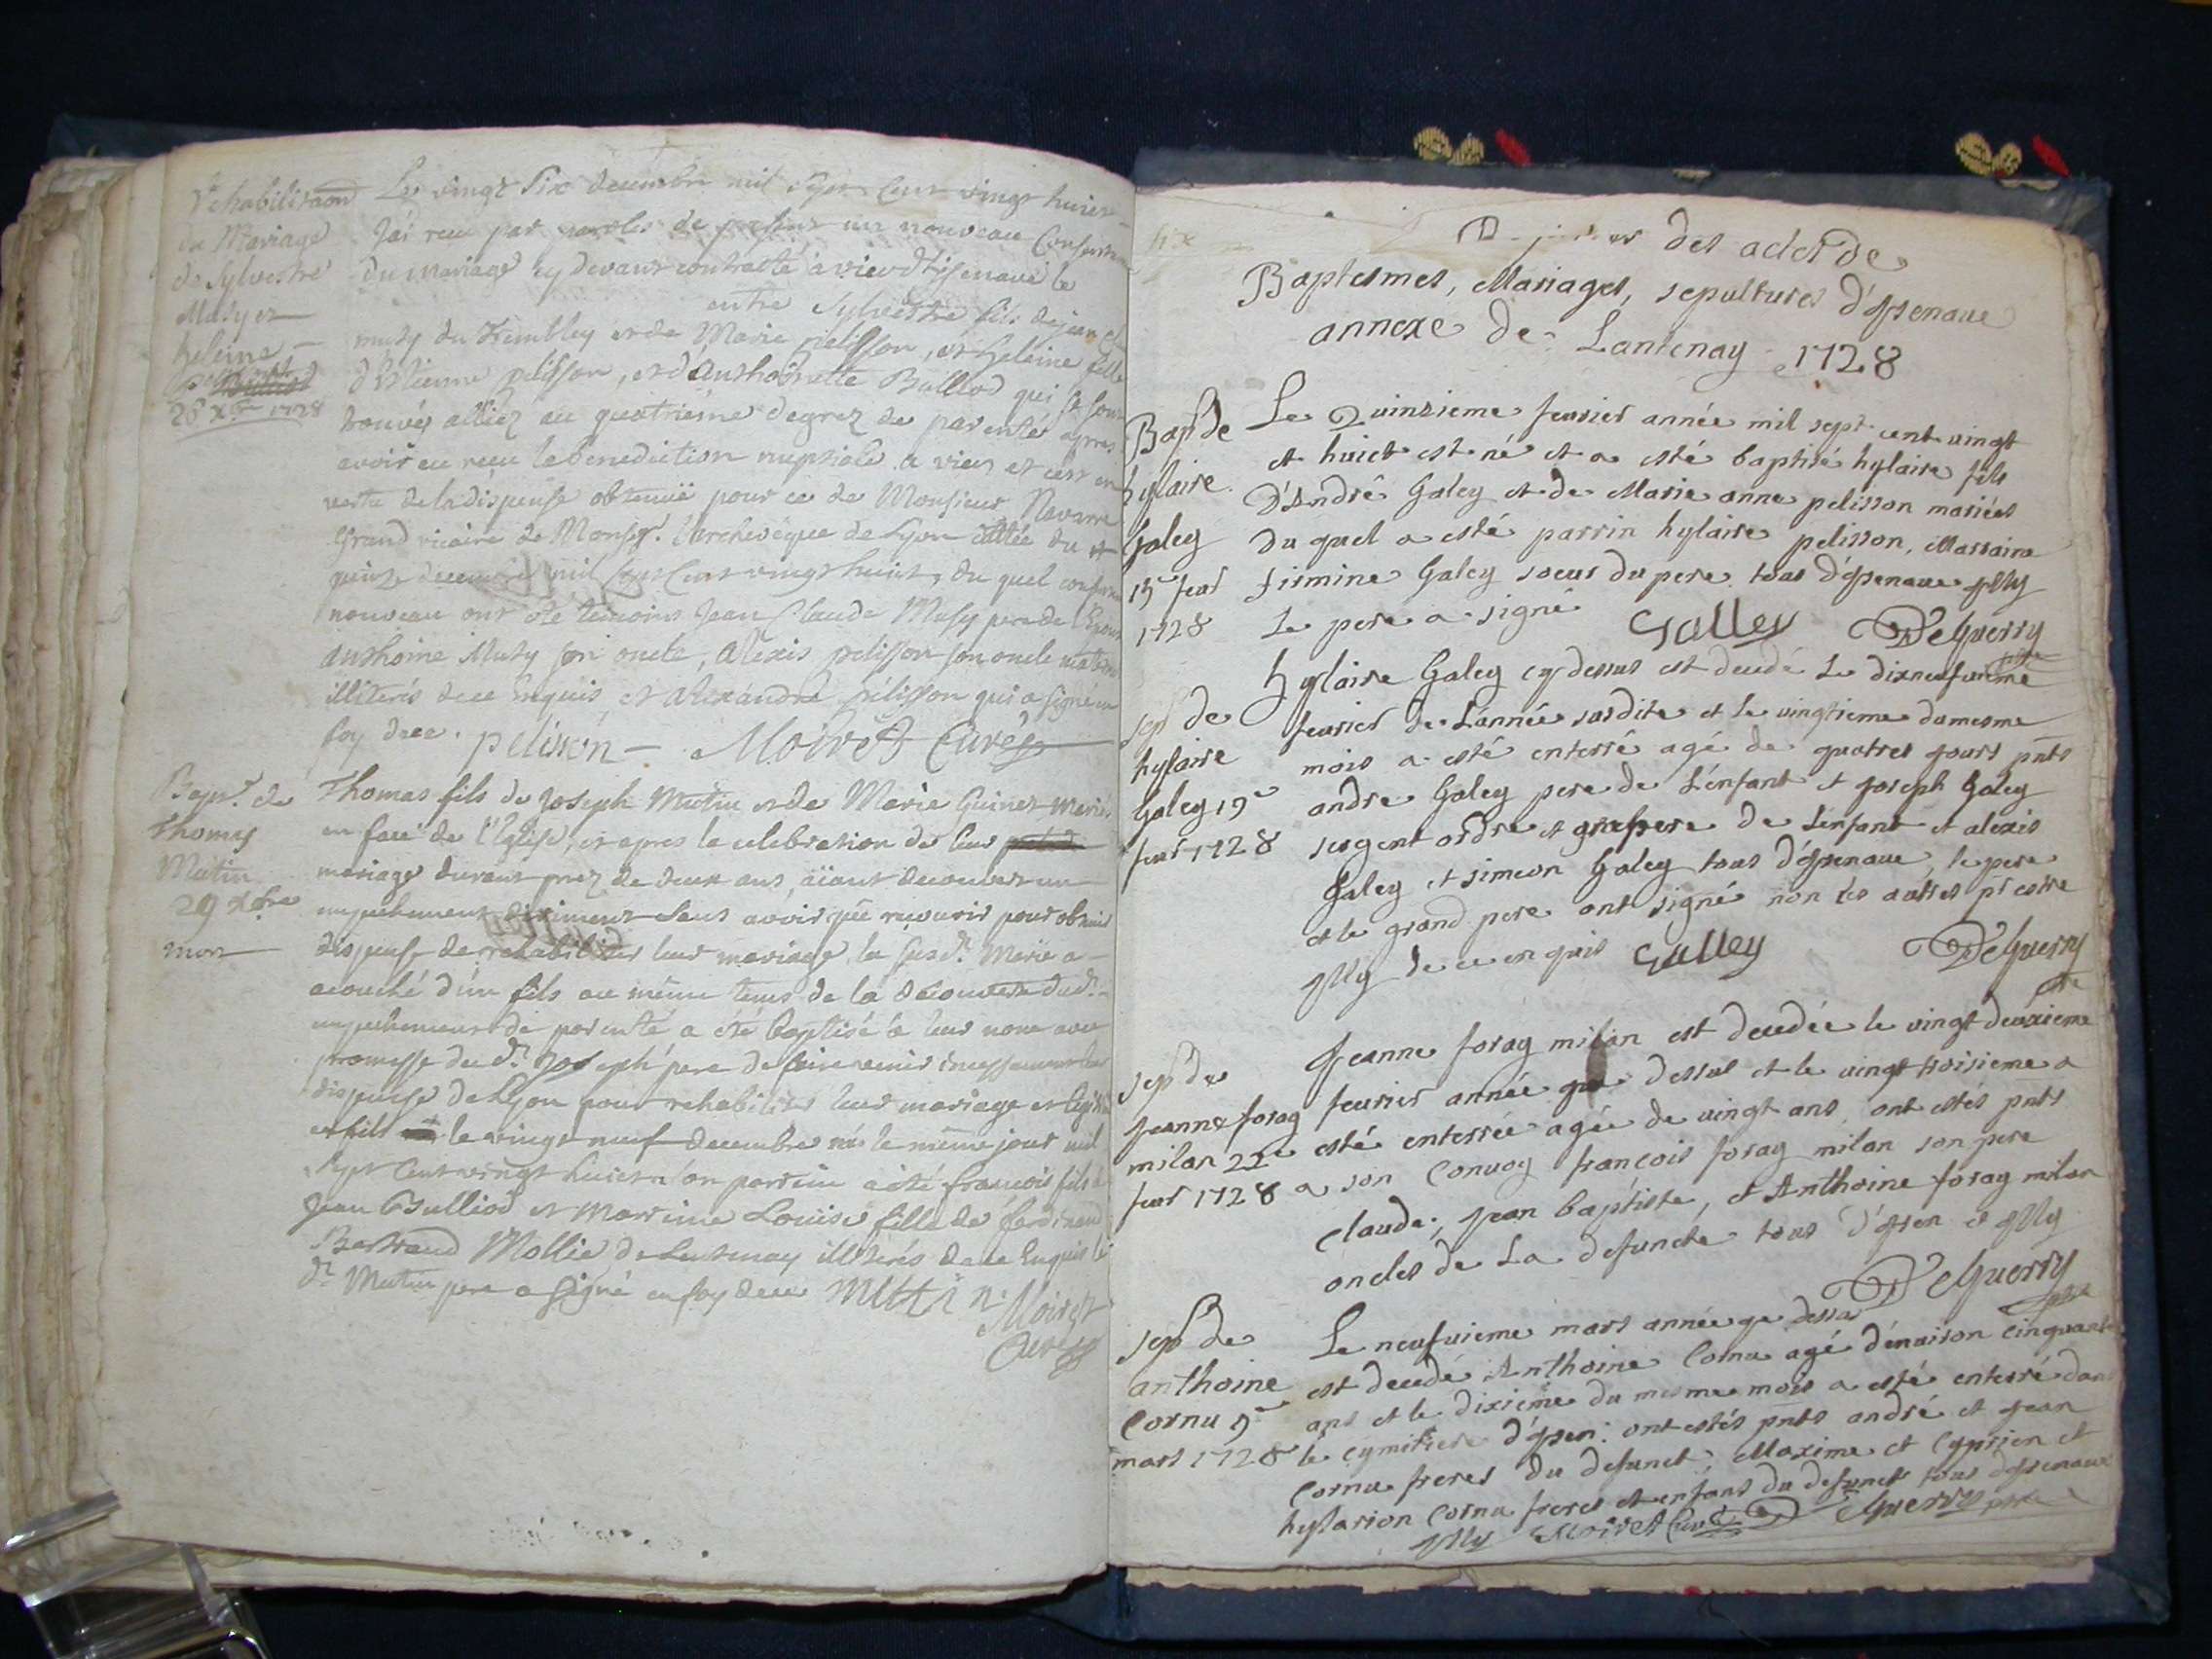 rehabilitaõn
du Mariage
de Sylvestre
Musy et
heleine
pelisson
26 Xbre 1728
Le vingt Six decembre mil sept cent vingt huict
J'ai receu par paroles de present un nouveau Consentement
du mariage cy devant contracté à vieu d'Isenave le
entre Sylvestre fils de jean Cl
musy du Trembley et de Marie pelisson, et heleine fille
d'Estienne pelisson, et d'Anthoinette Balliod qui se sont
trouvés alliez au quatrieme degrez de parenté apres
avoir eu receu la benediction nuptiale a vieu et c'est en
vertu de la dispense obtenuë pour ce de Monsieur Navarre
grand vicaire de Monsgr. l'archevêque de Lyon dattée du
quinze decembre mil sept cent vingt huict, du quel consentement
nouveau ont été temoins Jean Claude Musy pere de l'Epoux
anthoine Musy son oncle, Alexis pelisson son oncle maternel
illiterés de ce enquis, et alexandre pélisson qui a signé en
foy de ce. pelisson Moiret Curé
Bapt. de
Thomas
Mutin
29 Xbre
mort
Thomas fils de Joseph Mutin et de Marie Guinet mariés
en face de l'Eglise, et apres la celebration de leur
mariage durant prez de deux ans, aïant decouvert un
empechement dirimant sans avoir pû recourir pour obtenir
dispense de rehabiliter leur mariage, la susd. Marie a
acouché d'un fils au même tems de la decouverte dud.
empechement de parenté a été baptisé à leur nom avec
promesse du d. Joseph pere de faire venir incessamment
dispense de Lyon pour rehabiliter leur mariage et
et fils le vingt neuf decembre né le même jour mil
sept cent vingt huict son parrein a été francois fils de
Jean Bulliod et marrine Louise fille de ferdinand
Bertrand Mollie de Lentenay illiterés de ce Enquis le
d. Mutin pere a signé en foy de ce MUttin Moiret
Curé
des actes de
Baptesmes, Mariages, sepultures d'Jsenaue
annexe de Lantenay 1728
Bap de
hylaire
Galey
15e feur
1728
Le Quinzieme feurier année mil sept cent vingt
et huict est né et a esté baptisé hylaire fils
D'André Galey et de Marie anne pelisson mariés
du quel a esté parrin hylaire pelisson, Marraine
firmine Galey soeur du pere tous d'Jsenaue Jlly
Le pere a signé Galley DeGuerry
ptre
sep de
hylaire
Galey 19e
feur 1728
hylaire Galey cy dessus est decedé Le dixneufuieme
feurier de L'année susdite et le uingtieme du mesme
mois a esté enterré agé de quatres jours pnts
andre Galey pere de L'enfant et joseph Galey
sergent ordre et grahpere de L'enfant et alexis
Galey et simeon Galey tous d'Jsenaue, le pere
et le grand pere ont signé non les autres pr estre
Jlly de ce enquis Galley DeGuerry
ptre
sep de
Jeanne foray
milan 22e
feur 1728
Jeanne foray milan est decedée le vingt deuxieme
feurier année que dessus et le uingt troisieme a
esté enterrée agée de uingt ans ont estés pnts
a son Conuoy françois foray milan son pere
Claude, Jean baptiste, et Anthoine foray milan
oncles de La defuncte tous d'Jsen et Jlly
DeGuerry
ptre
sep de
anthoine
Cornu 9e
mars 1728
Le neufuieme mars année qe dessus
est decedé Anthoine Cornu agé d'enuiron cinquante
ans et le dixieme du mesme mois a esté enterré dans
le cymitiere d'Jsen: ont estés pnts andré et Jean
Cornu freres du defunct; Maxime et Cyprien et
hylarion Cornu freres et enfans du defunct tous d'Jsenaue
Jlly Moiret Curé DeGuerry ptre